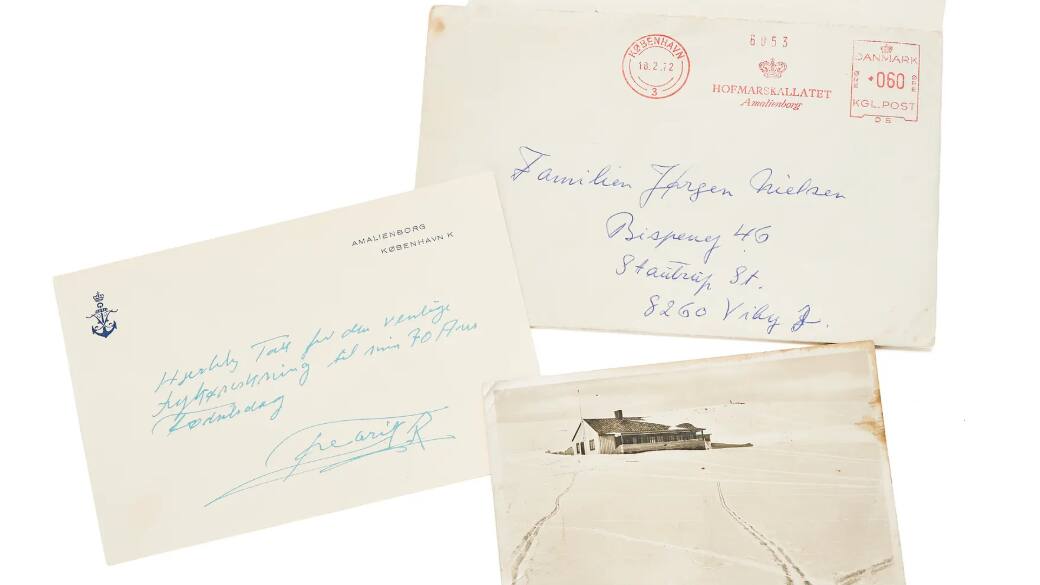 KØBENHAVN
18.2.72
3
6053
HOFMARSKALLATET
Amalienborg
DANMARK
060
KGL. POST
Familien Jørgen Nielsen
46
Stautrup St.
8260 Viby J.
AMALIENBORG
KØBENHAVN K
Hjertelig Tak for den venlige
Lykønskning til min 70 Aars
Fødselsdag
Frederik R